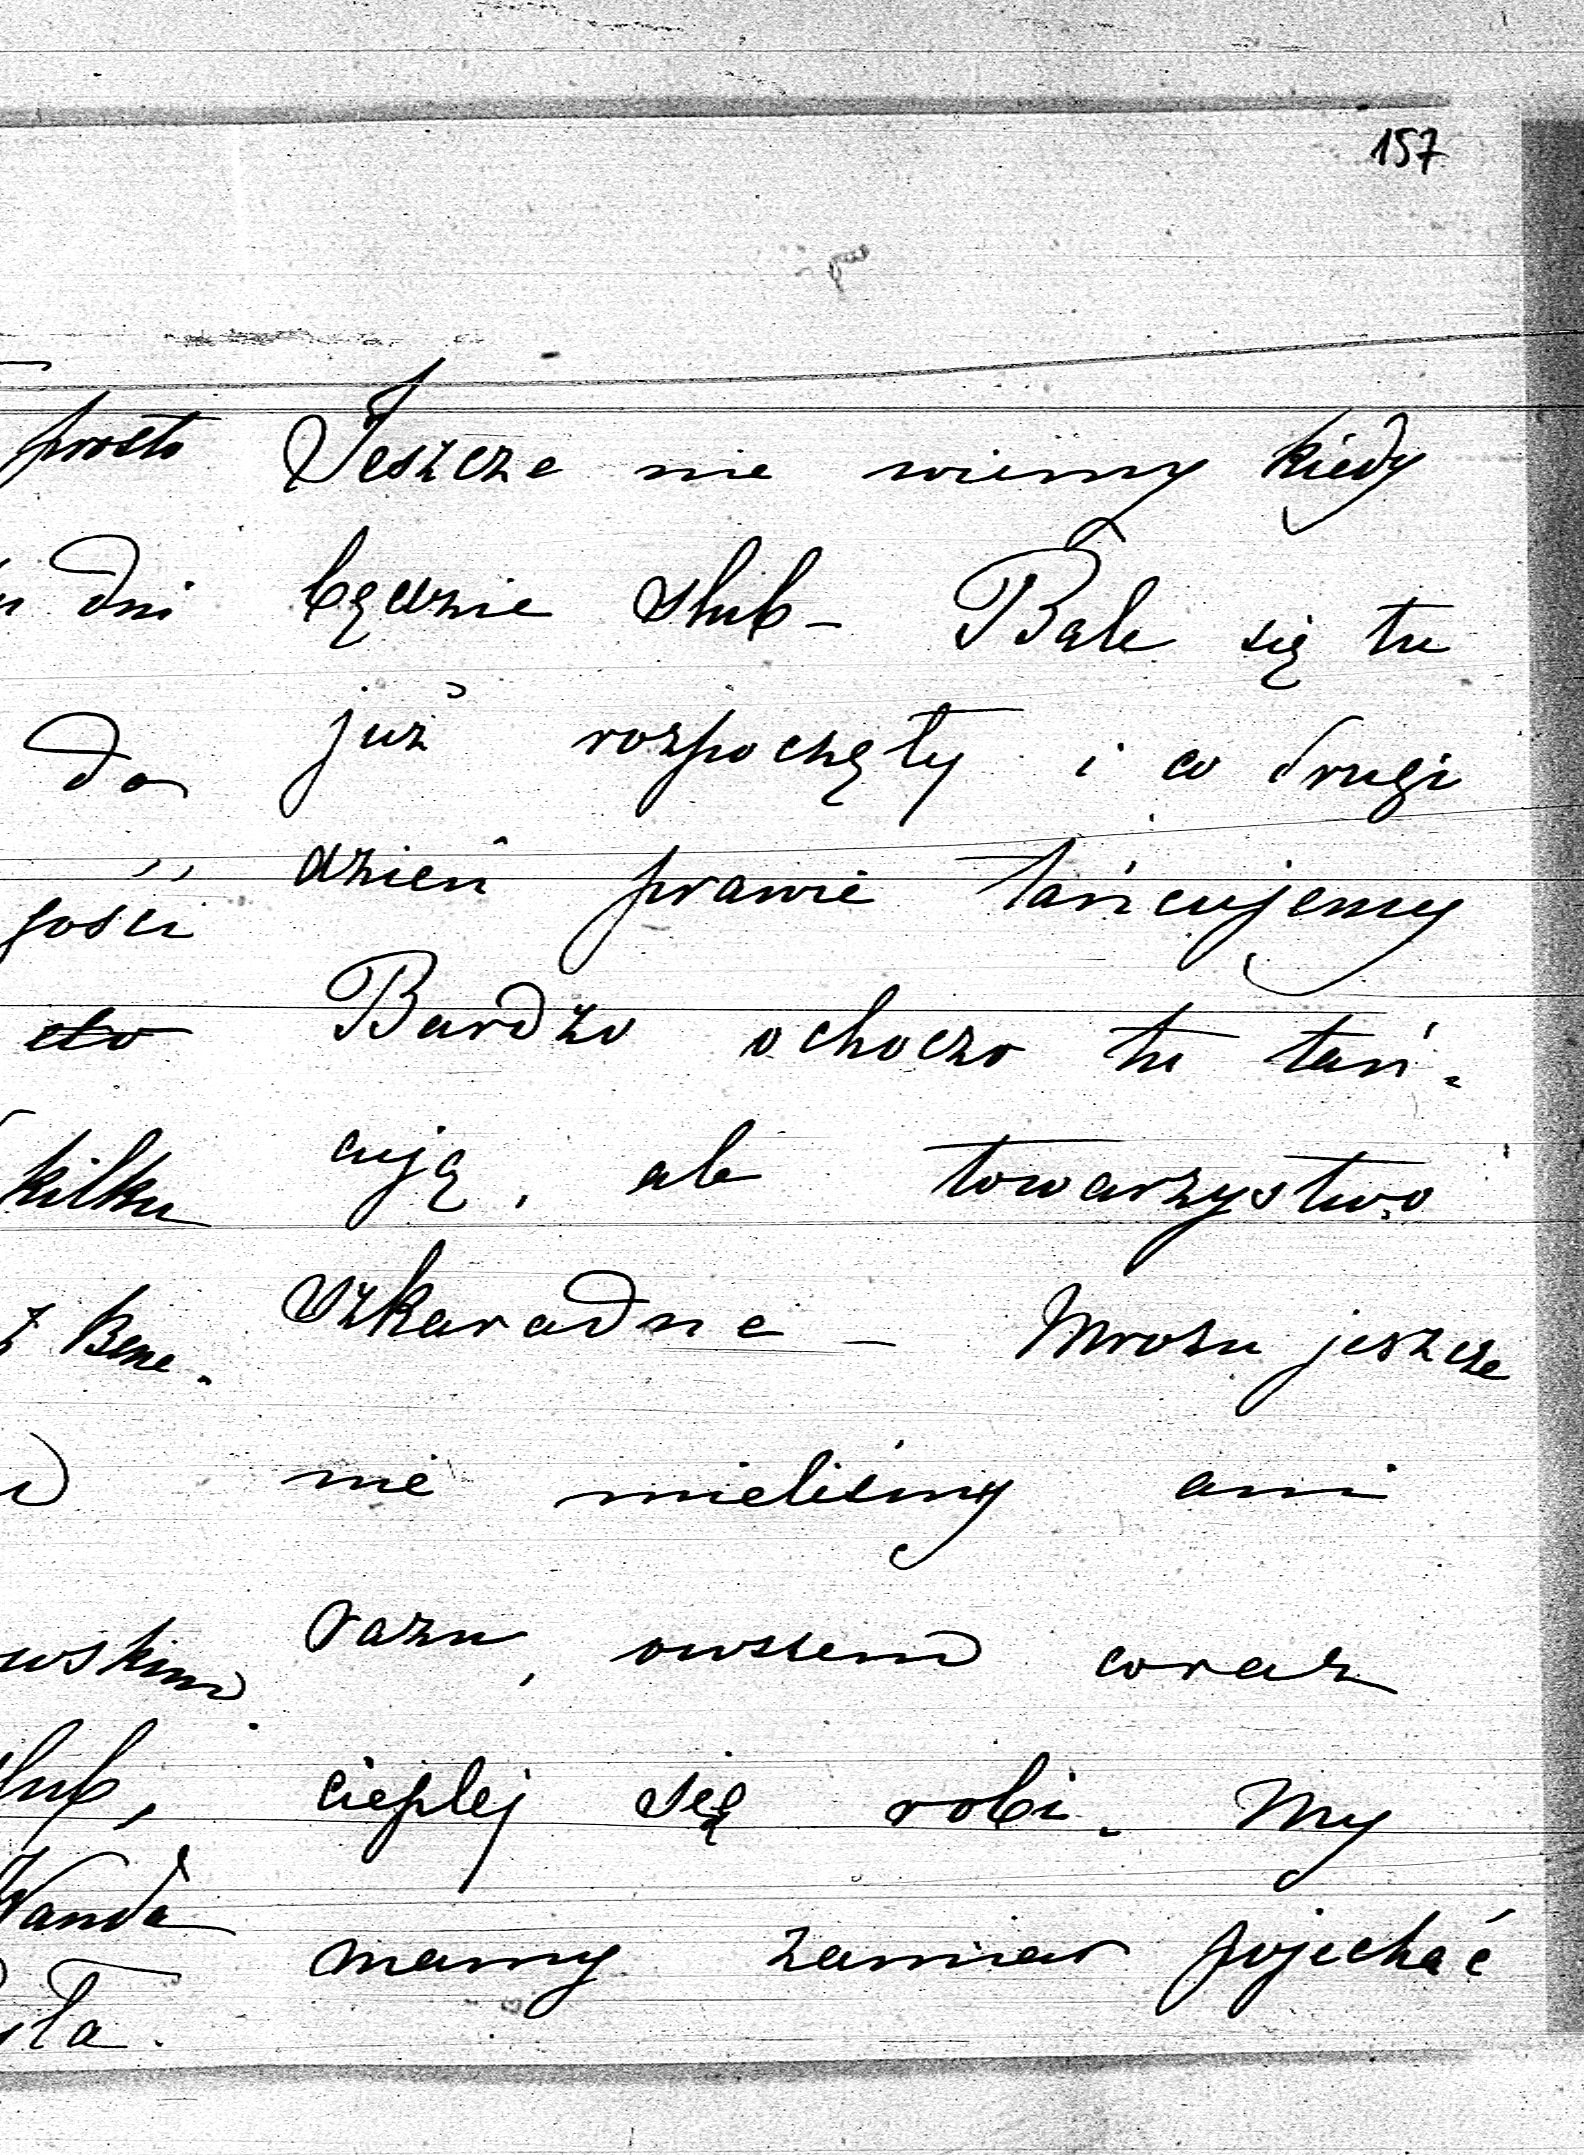 157
prosto
dni
do
gości
kilku
z Bene.
Wanda
Jeszcze nie wiemy kiedy
będzie ślub – Bale się tu
już rozpoczęły i co drugi
dzień prawie tańcujemy
Bardzo ochoczo tu tań-
cują, ale towarzystwo
szkaradne – Mrozu jeszcze
nie mieliśmy ani
razu, owszem coraz
cieplej się robi. My
mamy zamiar pojechać